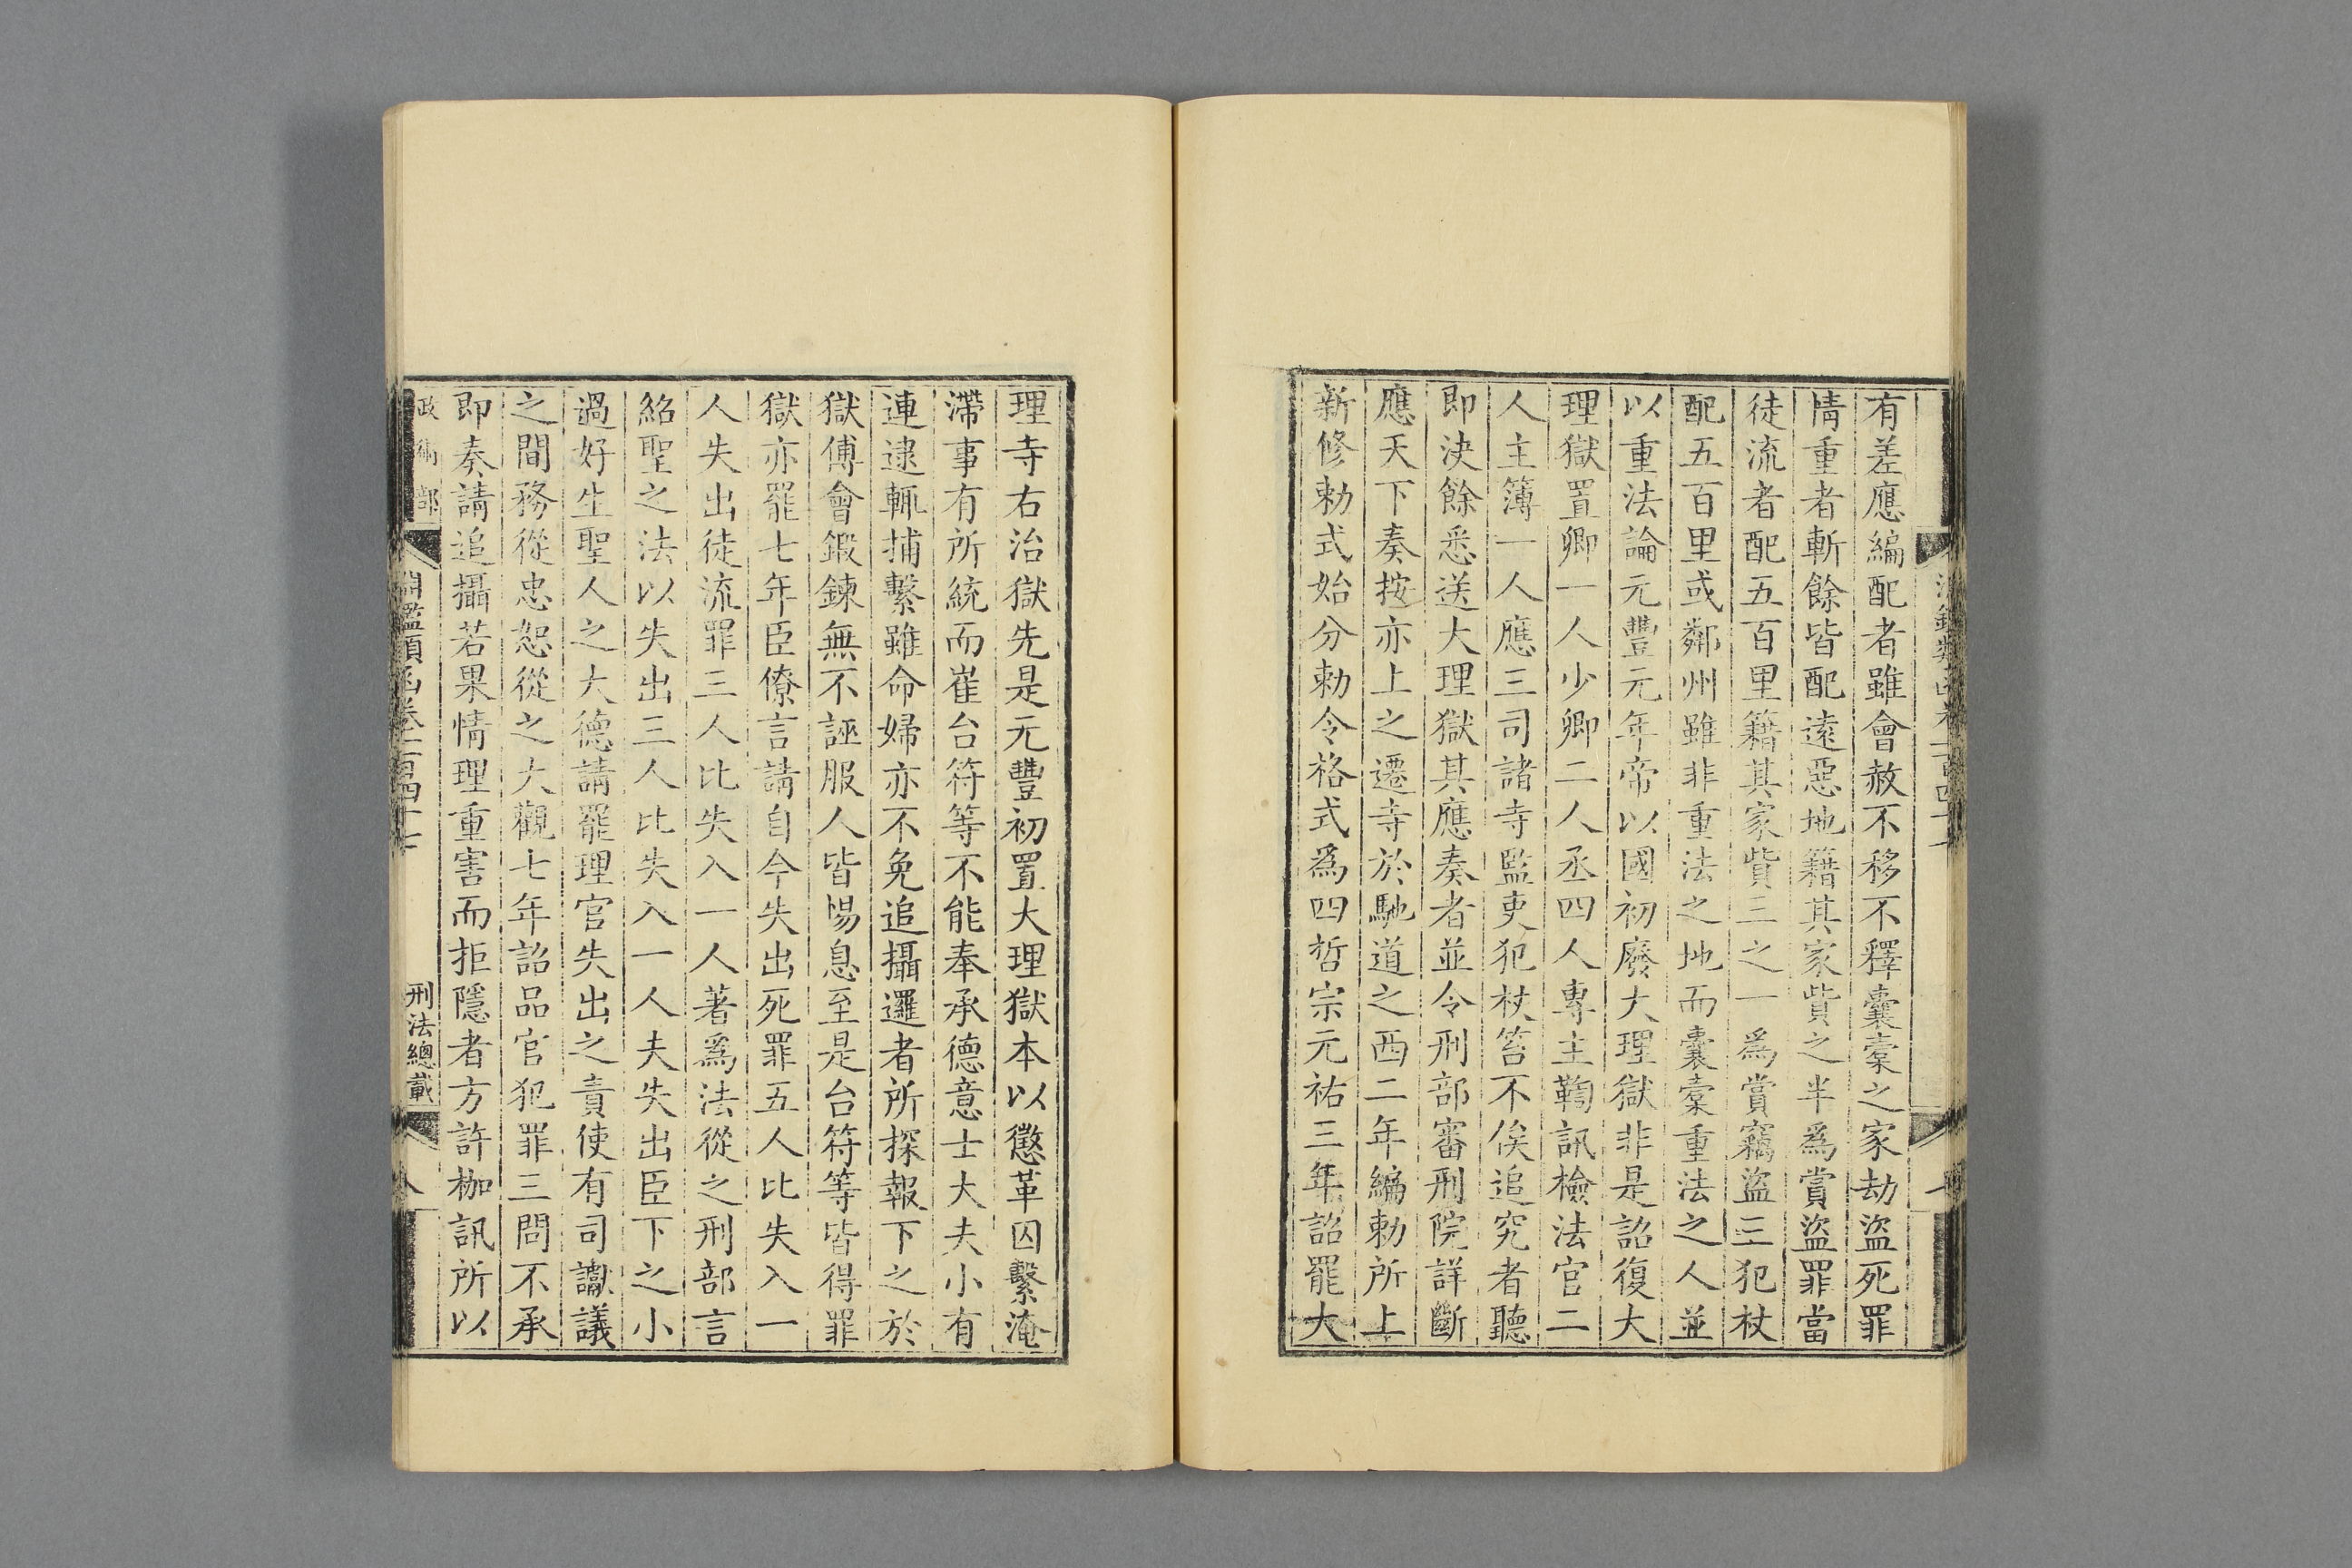 有差應編配者雖會赦不移不釋囊橐之家劫盜死罪
情重者斬餘皆配遠惡地籍其家貲之半爲賞盜罪當
徒流者配五百里籍其家貲三之一爲賞竊盜三犯杖
配五百里或鄰州雖非重法之地而囊橐重法之人並
以重法論元豐元年帝以國初廢大理獄非是詔復大
理獄置卿一人少卿二人丞四人專主鞫訊檢法官二
人主簿一人應三司諸寺監吏犯杖笞不俟追究者聽
即決餘悉送大理獄其應奏者並令刑部審刑院詳斷
應天下奏按亦上之遷寺於馳道之西二年編勅所上
新修勅式始分勅令格式爲四哲宗元祐三年詔罷大
理寺右治獄先是元豐初置大理獄本以懲革囚繫淹
滯事有所統而崔台符等不能奉承德意士大夫小有
連逮輒捕繫雖命婦亦不免追攝邏者所探報下之於
獄傅會鍛鍊無不誣服人皆惕息至是台符等皆得罪
獄亦罷七年臣僚言請自今失出死罪五人比失入一
人失出徒流罪三人比失入一人著爲法從之刑部言
紹聖之法以失出三人比失入一人夫失出臣下之小
過好生聖人之大德請罷理官失出之責使有司讞議
之間務從忠恕從之大觀七年詔品官犯罪三問不承
即奏請追攝若果情理重害而拒隱者方許枷訊所以
政術部
淵鑑類函卷一百四十七
刑法總載
八